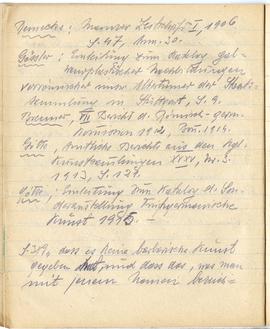 Mannus Zeitschrift I, 1906
S. 47, Anm. 30.
Gössler; Einleitung zum Katalog gal-
vanoplastischer Nachbildungen
der Staats-
sammlung in Stuttgart, S. 9.
Brenner, VII Bericht d. Römisch-germ.
Komission 1912, 1914.
Götze, Amtliche Berichte aus den Kgl.
Kunstsammlungen XXXV, Nr. 5.
1913, S. 129.
Götze, Einleitung zum Katalog d. Son-
derausstellung Frühgermanische
Kunst 1915.
dass es keine barbarische Kunst
gegeben hat, und dass das, was man
mit jenem Namen